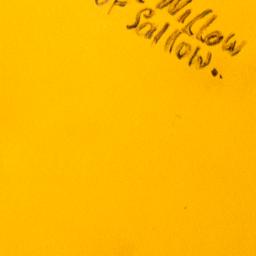 Willow
of Sallow..